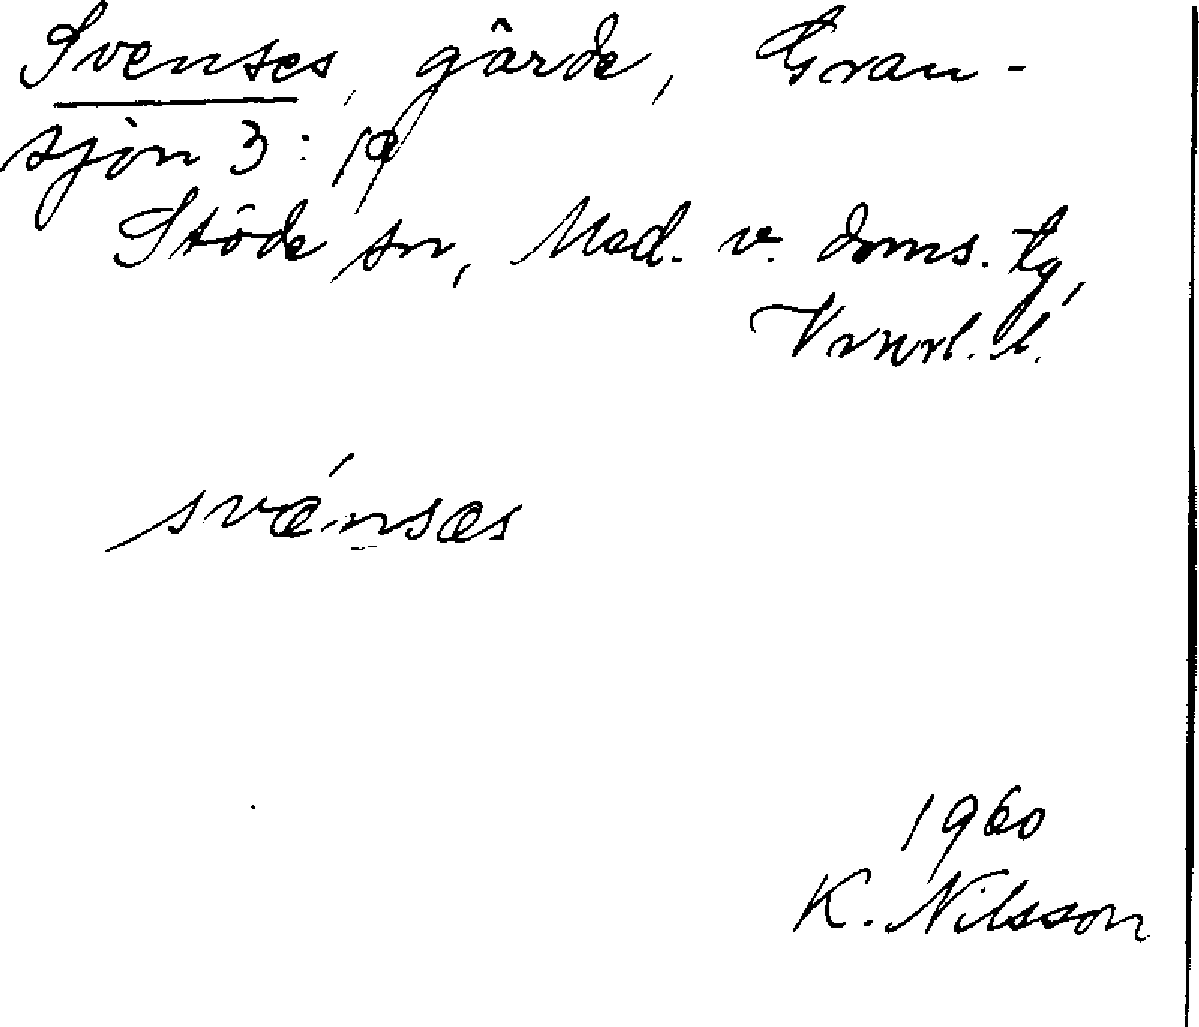 Svenses, gårde, Gran-
sjön 3:19
Stöde sn, Med. v. doms. tg,
Vrnrl. l.
svǽnsæs
1960
K. Nilsson